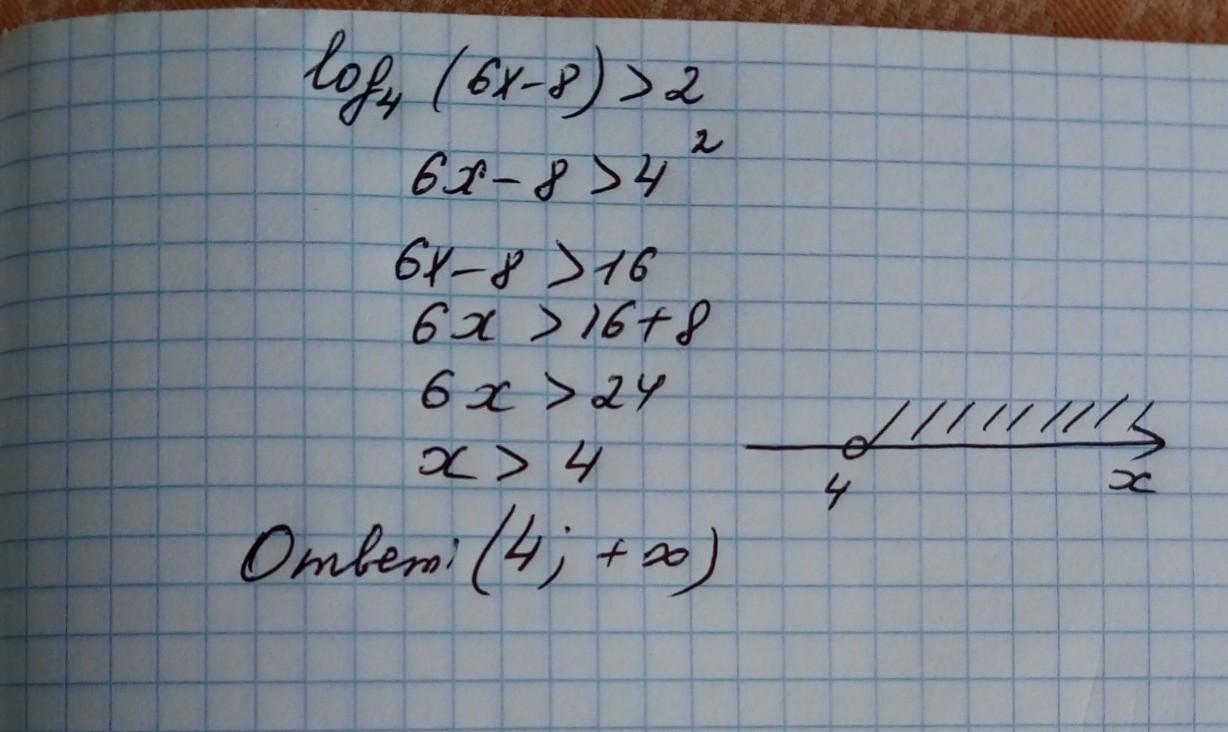 log₄ (6x-8) > 2
6x - 8 > 4²
6x - 8 > 16
6x > 16 + 8
6x > 24
x > 4
4 x
Ответ: (4; +∞)